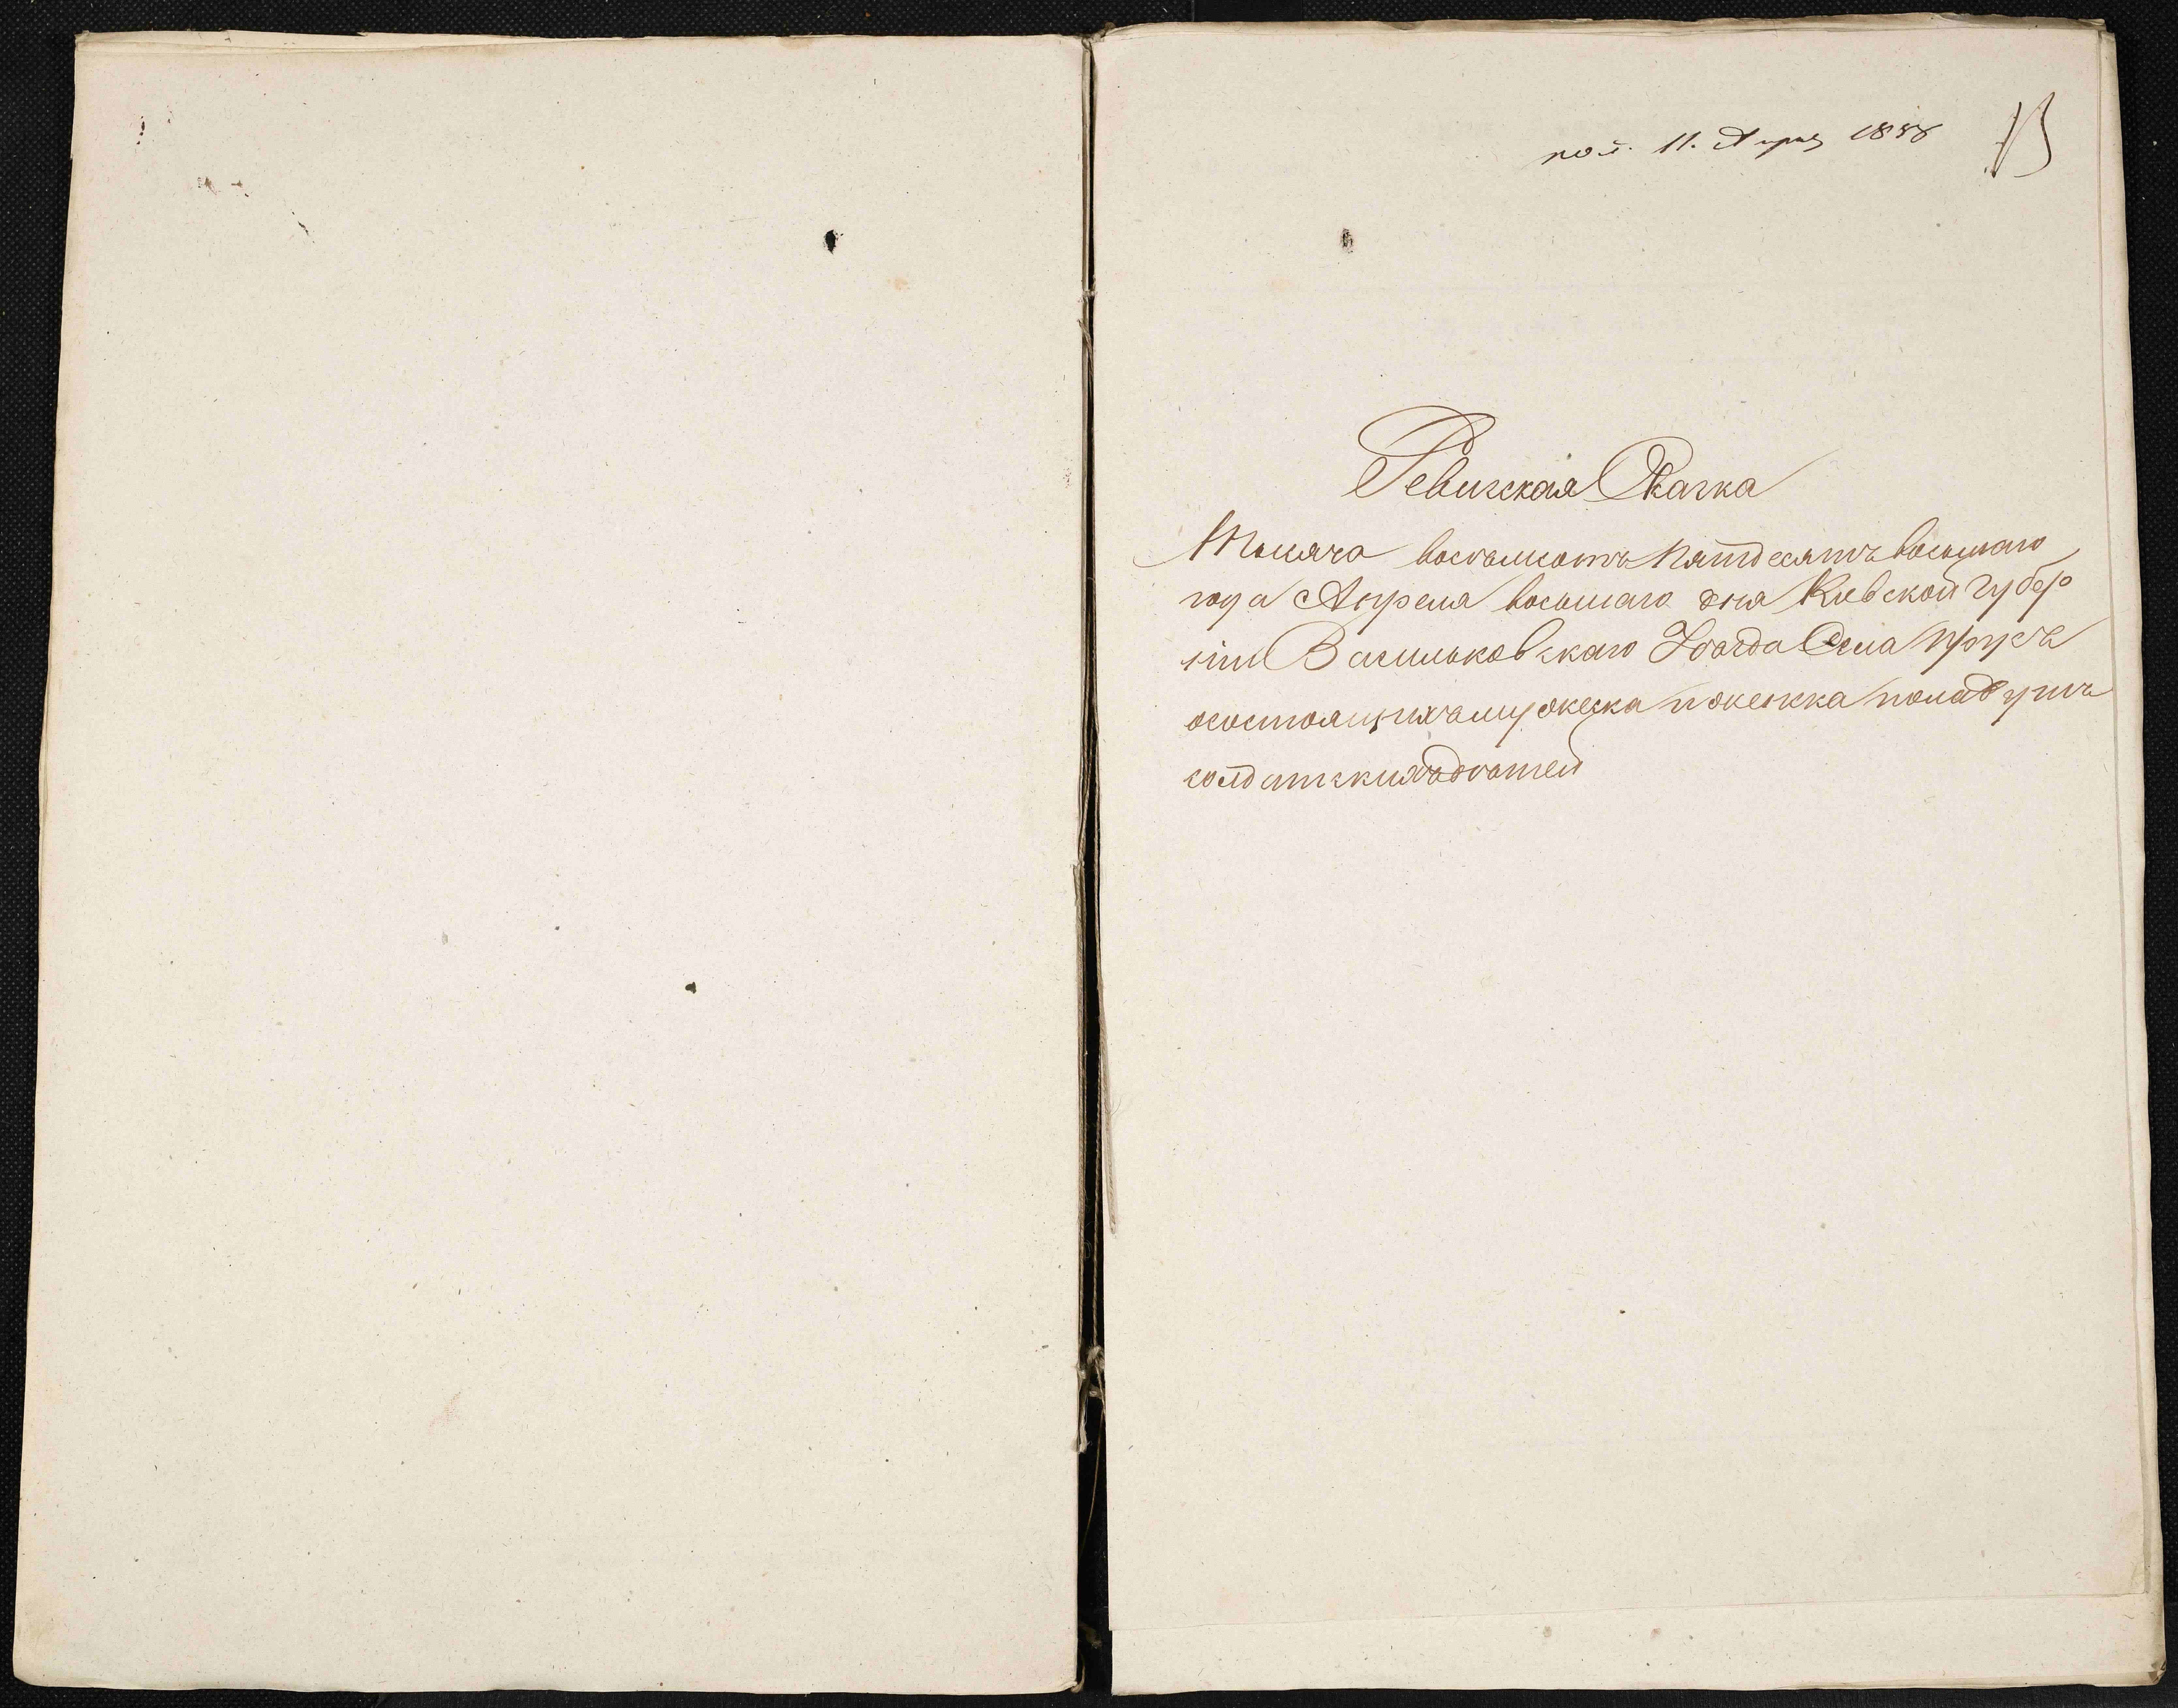 пол. 11. Апрѣ 1858
Ревизская Сказка
Тысяча восѣмсотъ пятдесятъ восьмаго
года Апреля восьмаго дня Киевской Губер
нiи Васильковскаго Уѣзда Села
осостоящихъ мужеска и женска пола душъ
солдатскихъ дѣтей